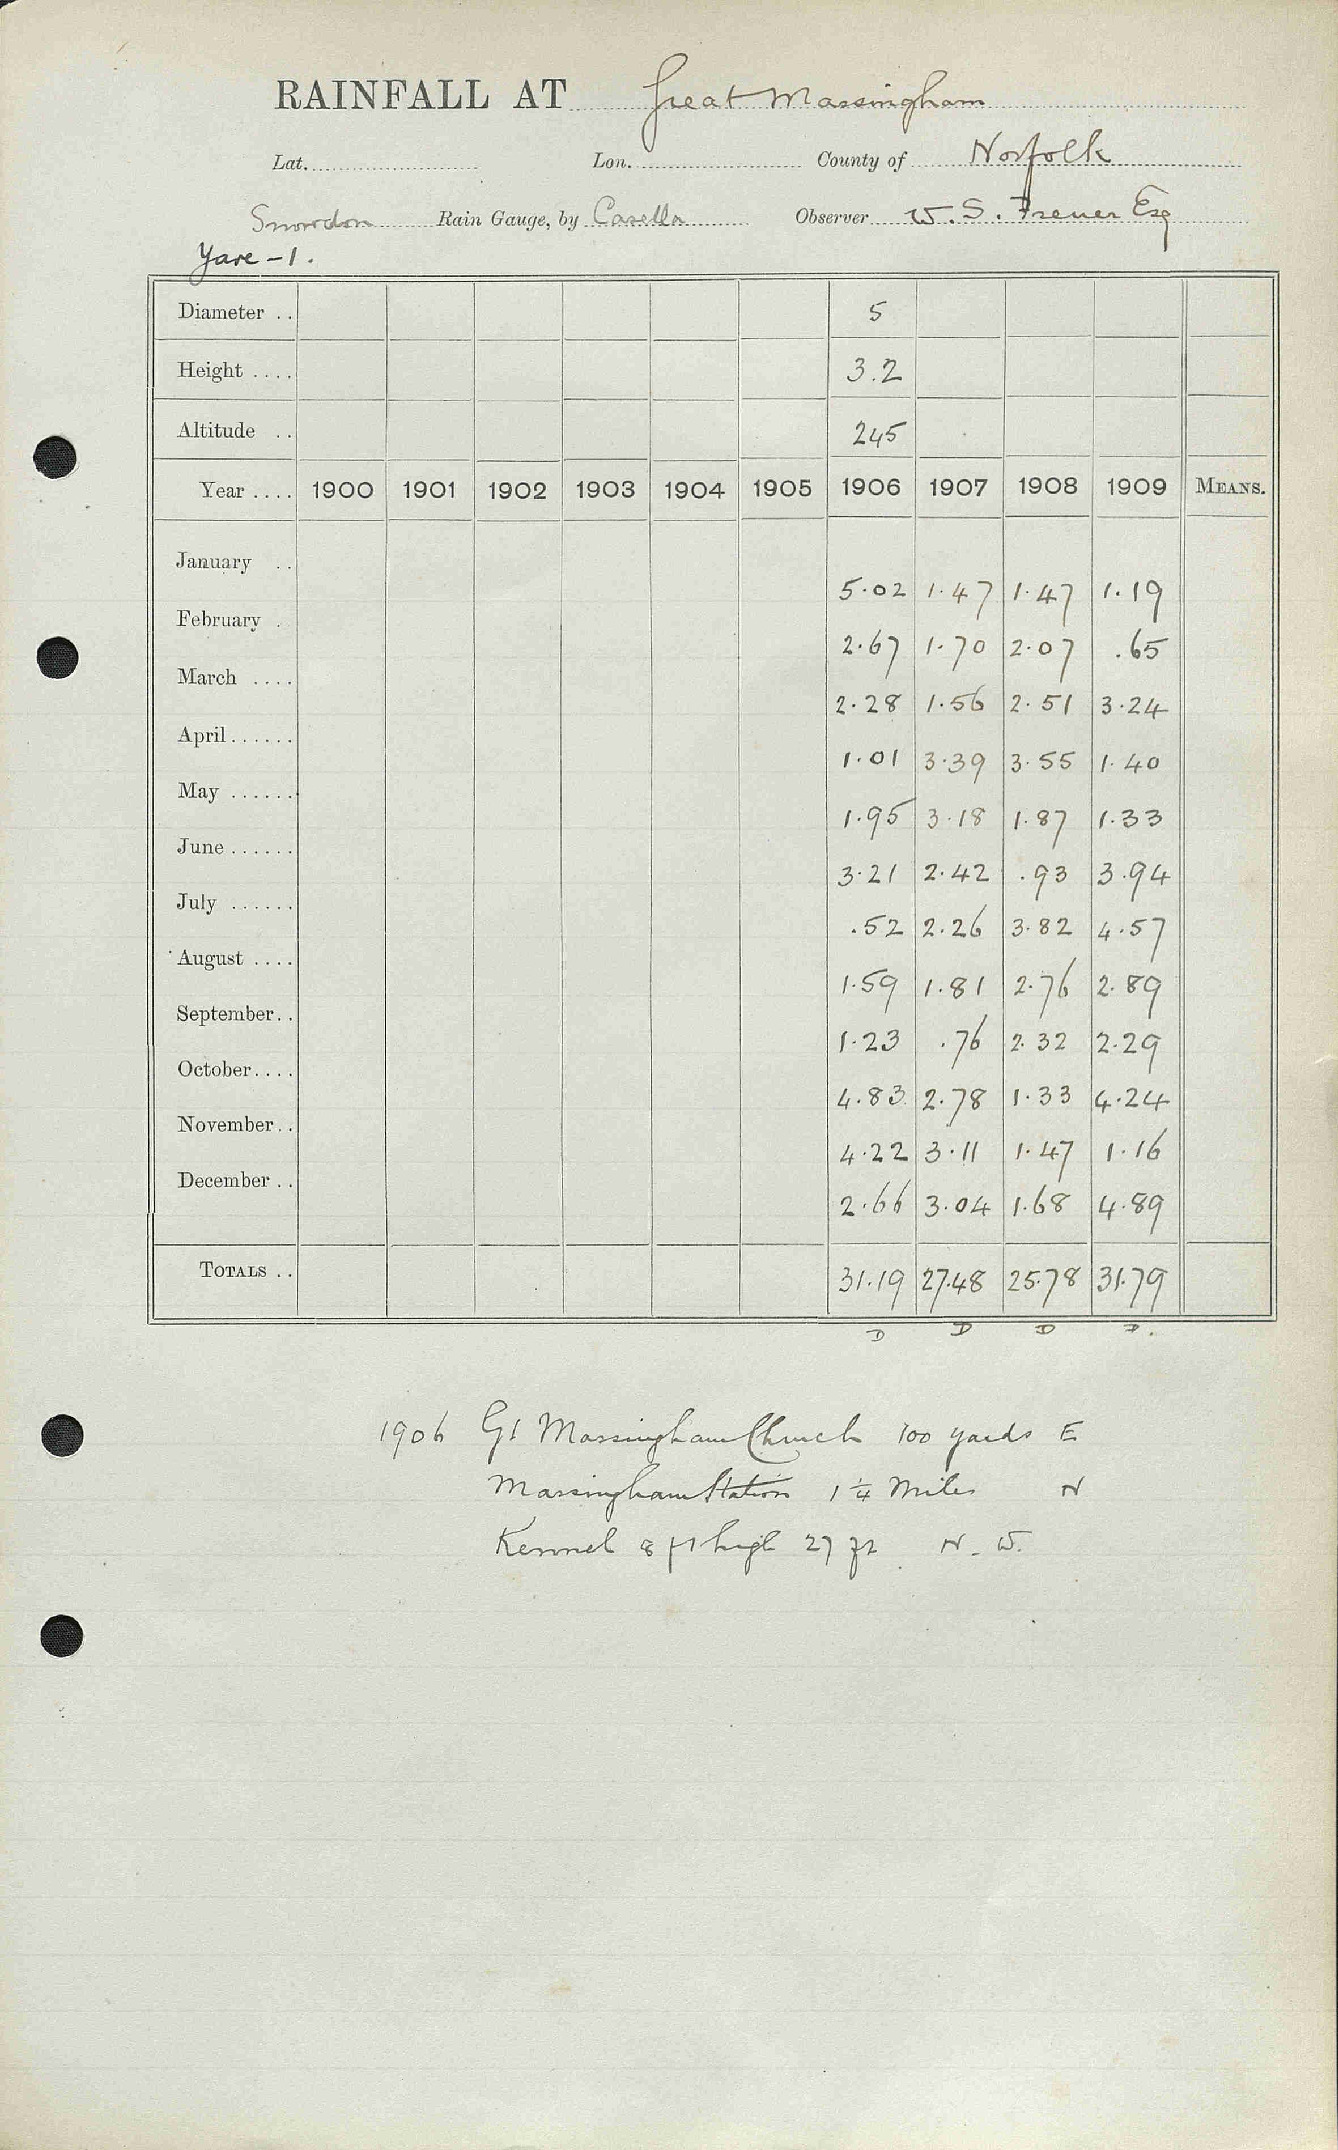 RAINFALL AT Great Massingham
Lat. Lon. County of Norfolk
Snowdon Rain Gauge, by Casella Observer W. S. Esq
Yare - 1.
Diameter .. 5
Height .... 3.2
Altitude .. 245
Year .... 1900 1901 1902 1903 1904 1905 1906 1907 1908 1909 MEANS.
January .. 5.02 1.47 1.47 1.19
February . 2.67 1.70 2.07 .65
March .... 2.28 1.56 2.51 3.24
April...... 1.01 3.39 3.55 1.40
May ...... 1.95 3.18 1.87 1.33
June ...... 3.21 2.42 .93 3.94
July ...... .52 2.26 3.82 4.57
August .... 1.59 1.81 2.76 2.89
September.. 1.23 .76 2.32 2.29
October.... 4.83 2.78 1.33 4.24
November.. 4.22 3.11 1.47 1.16
December .. 2.66 3.04 1.68 4.89
TOTALS .. 31.19 27.48 25.78 31.79
D D D D.
1906 Gt Massingham Church 100 yards E
Massingham Station 1 1/4 Miles N
Kennel 8 ft high 27 ft N. W.